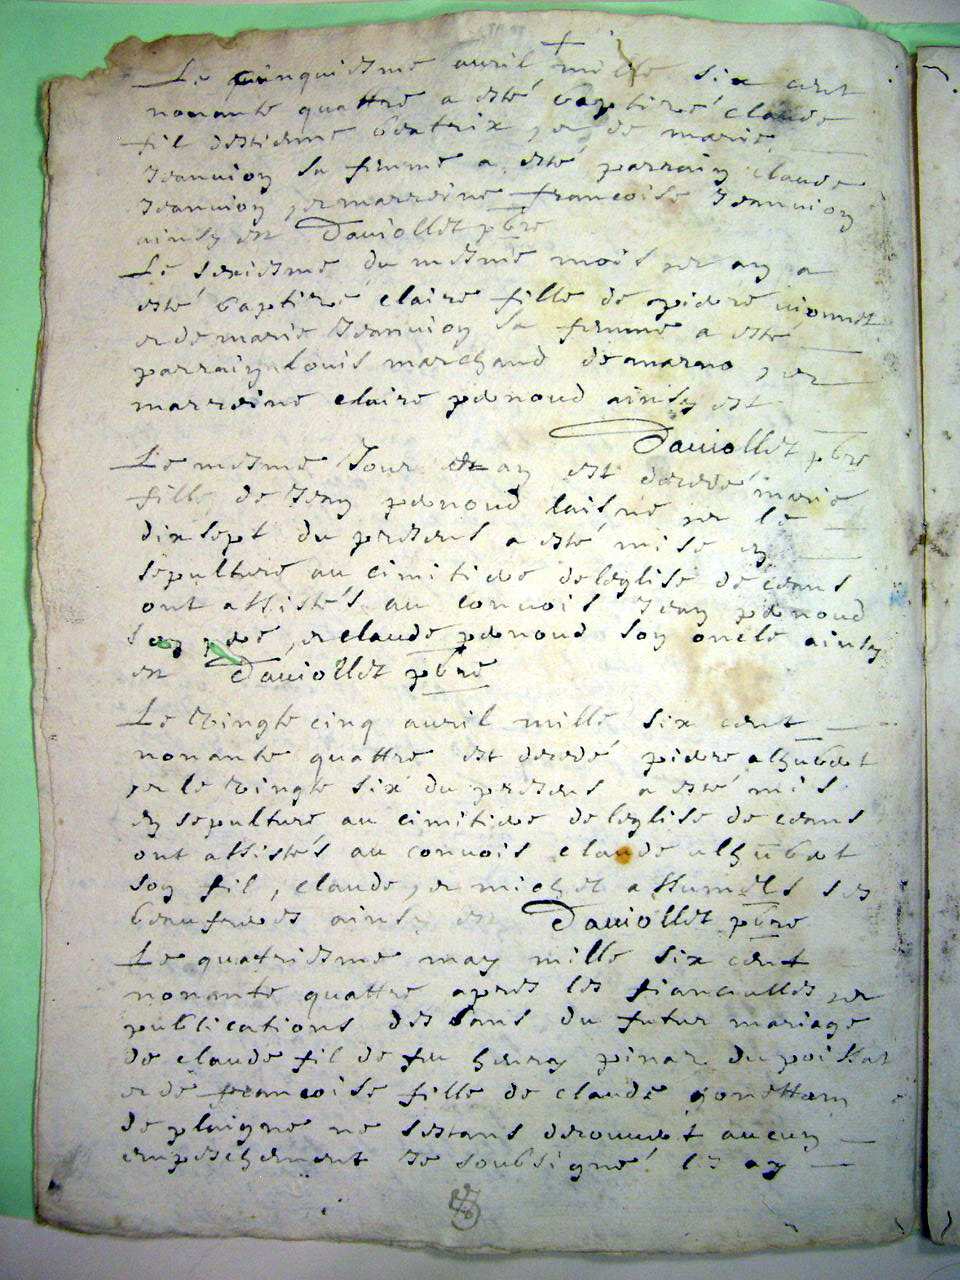 Le cinquiesme auril mille six cent
nonante quattre a esté baptizé claude
fil destienne beatrix, et de marie
Jeannion sa femme a esté parrain claude
Jeannion, et marreine francoise Jeannion
ainsy est Dauiollet pbre
Le sexiesme du mesme mois et an a
esté baptizé claire fille de pierre
et de marie Jeannion sa femme a este
parrain Louis marchand de marno, et
marreine claire penoud ainsy est
Dauiollet pbre
Le mesme Jour et an est decedé marie
fille de Jean penoud laisné et le
dixsept du present a esté mise en
sepulture au cimitiere de leglise de ceans
ont assistés au conuois Jean penoud
son pere, et claude penoud son oncle ainsy
est Dauiollet pbre
Le vingte cinq auril mille six cent
nonante quattre est decedé pierre alhubert
et le vingte six du present a esté mis
en sepulture au cimitiere de leglise de ceans
ont assistés au conuois claude alhubert
son fil, claude, et michel assumels ses
beaufreres ainsy est Dauiollet pbre
Le quatriesme may mille six cent
nonante quattre apres les fiancialles et
publications des bans du futur mariage
de claude fil de fu henry pinar du
et de francoise fille de claude
de plaigne ne sestant decouuert aucun
empeschement Je soubsigné les ay